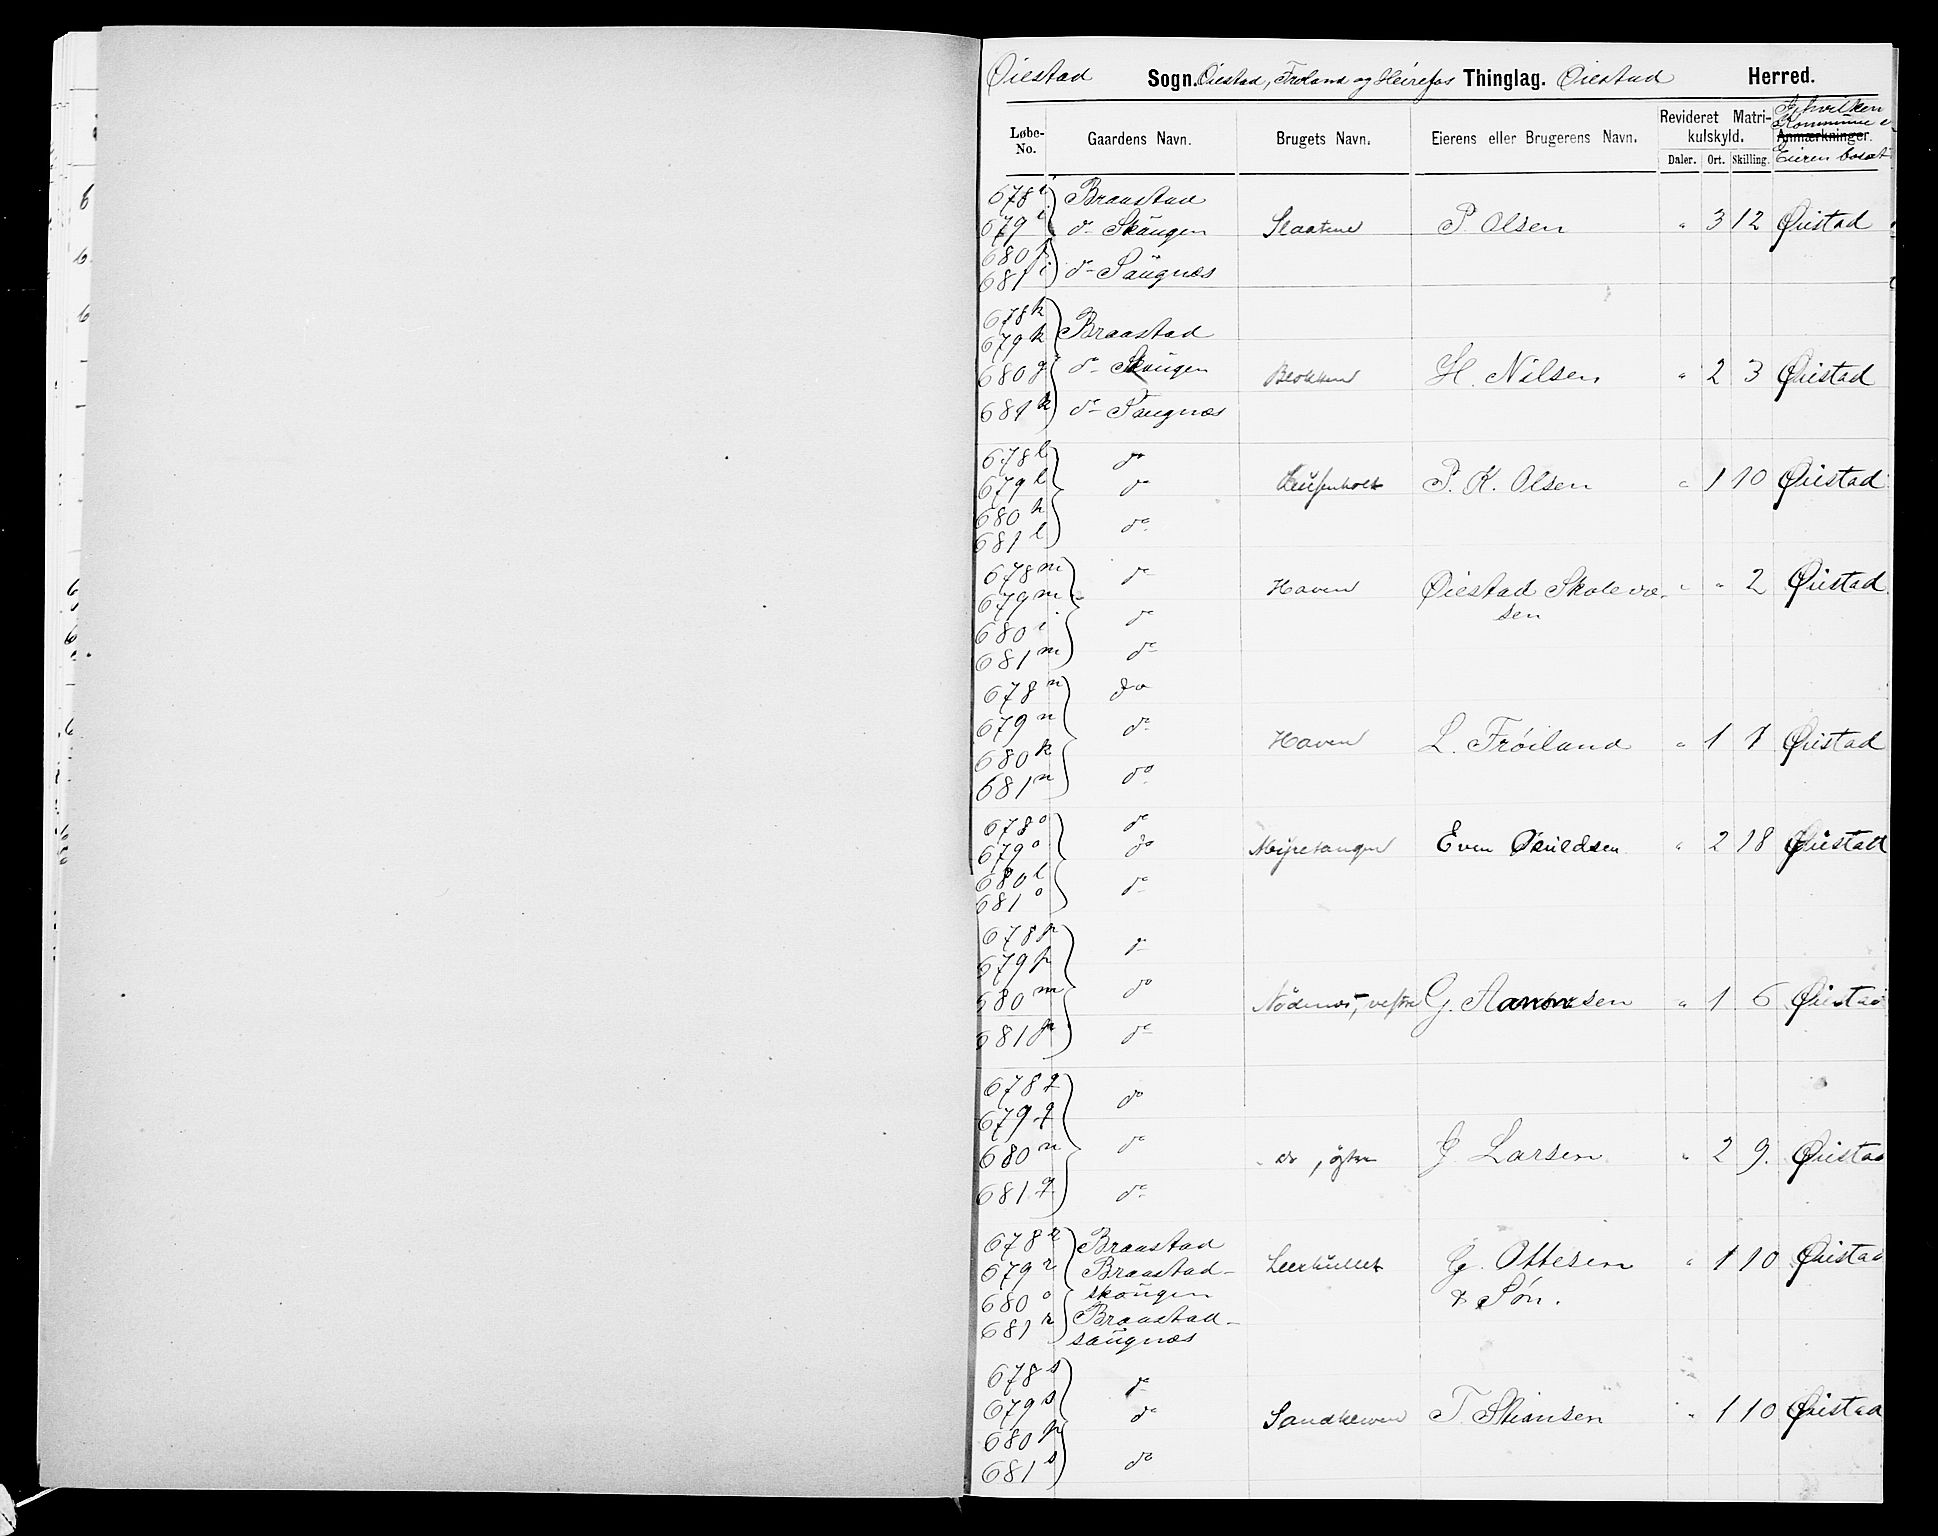 Øiestad Sogn. Øiestad, Froland og Heirefos Thinglag. Øiestad Herred.
Løbe-No. Gaardens Navn. Brugets Navn. Eierens eller Brugerens Navn. Revideret Matrikulskyld. Anmærkninger. I hvilken Kommune er Eieren bosat
Daler. Ort. Skilling.
678 i Braastad
679 i do Skougen Slaatene P. Olsen " 3 12 Øiestad
680 f
681 i do Saugnæs
678 k
679 k Braastad
680 g do Skougen H. Nilsen " 2 3 Øiestad
681 k do Saugnæs
678 l do
679 l do P. K. Olsen " 1 10 Øiestad
680 h
681 l do
678 m do
679 m Haven Øiestad Skolevæ- " " 2 Øiestad
680 i do sen
681 m do
678 n do
679 n do
Haven L. Frøiland " 1 1 Øiestad
680 k
681 n do
678 o do
679 o do Even " 2 18 Øiestad
680 l do
681 o
678 p do
679 p
680 m do Nødenæs, vestre G. Aanonsen " 1 6 Øiestad
681 p do
678 q do
679 q
680 n do do, østre G. Larsen " 2 9. Øiestad
681 q do
678 r Braastad
679 r Braastad- Leerhullet G. Ottesen " 1 10 Øiestad
680 o skougen & Søn.
681 r Braastad-
saugnæs
678 s do
679 s do Sandkleven T. " 1 10 Øiestad
680 p
681 s do